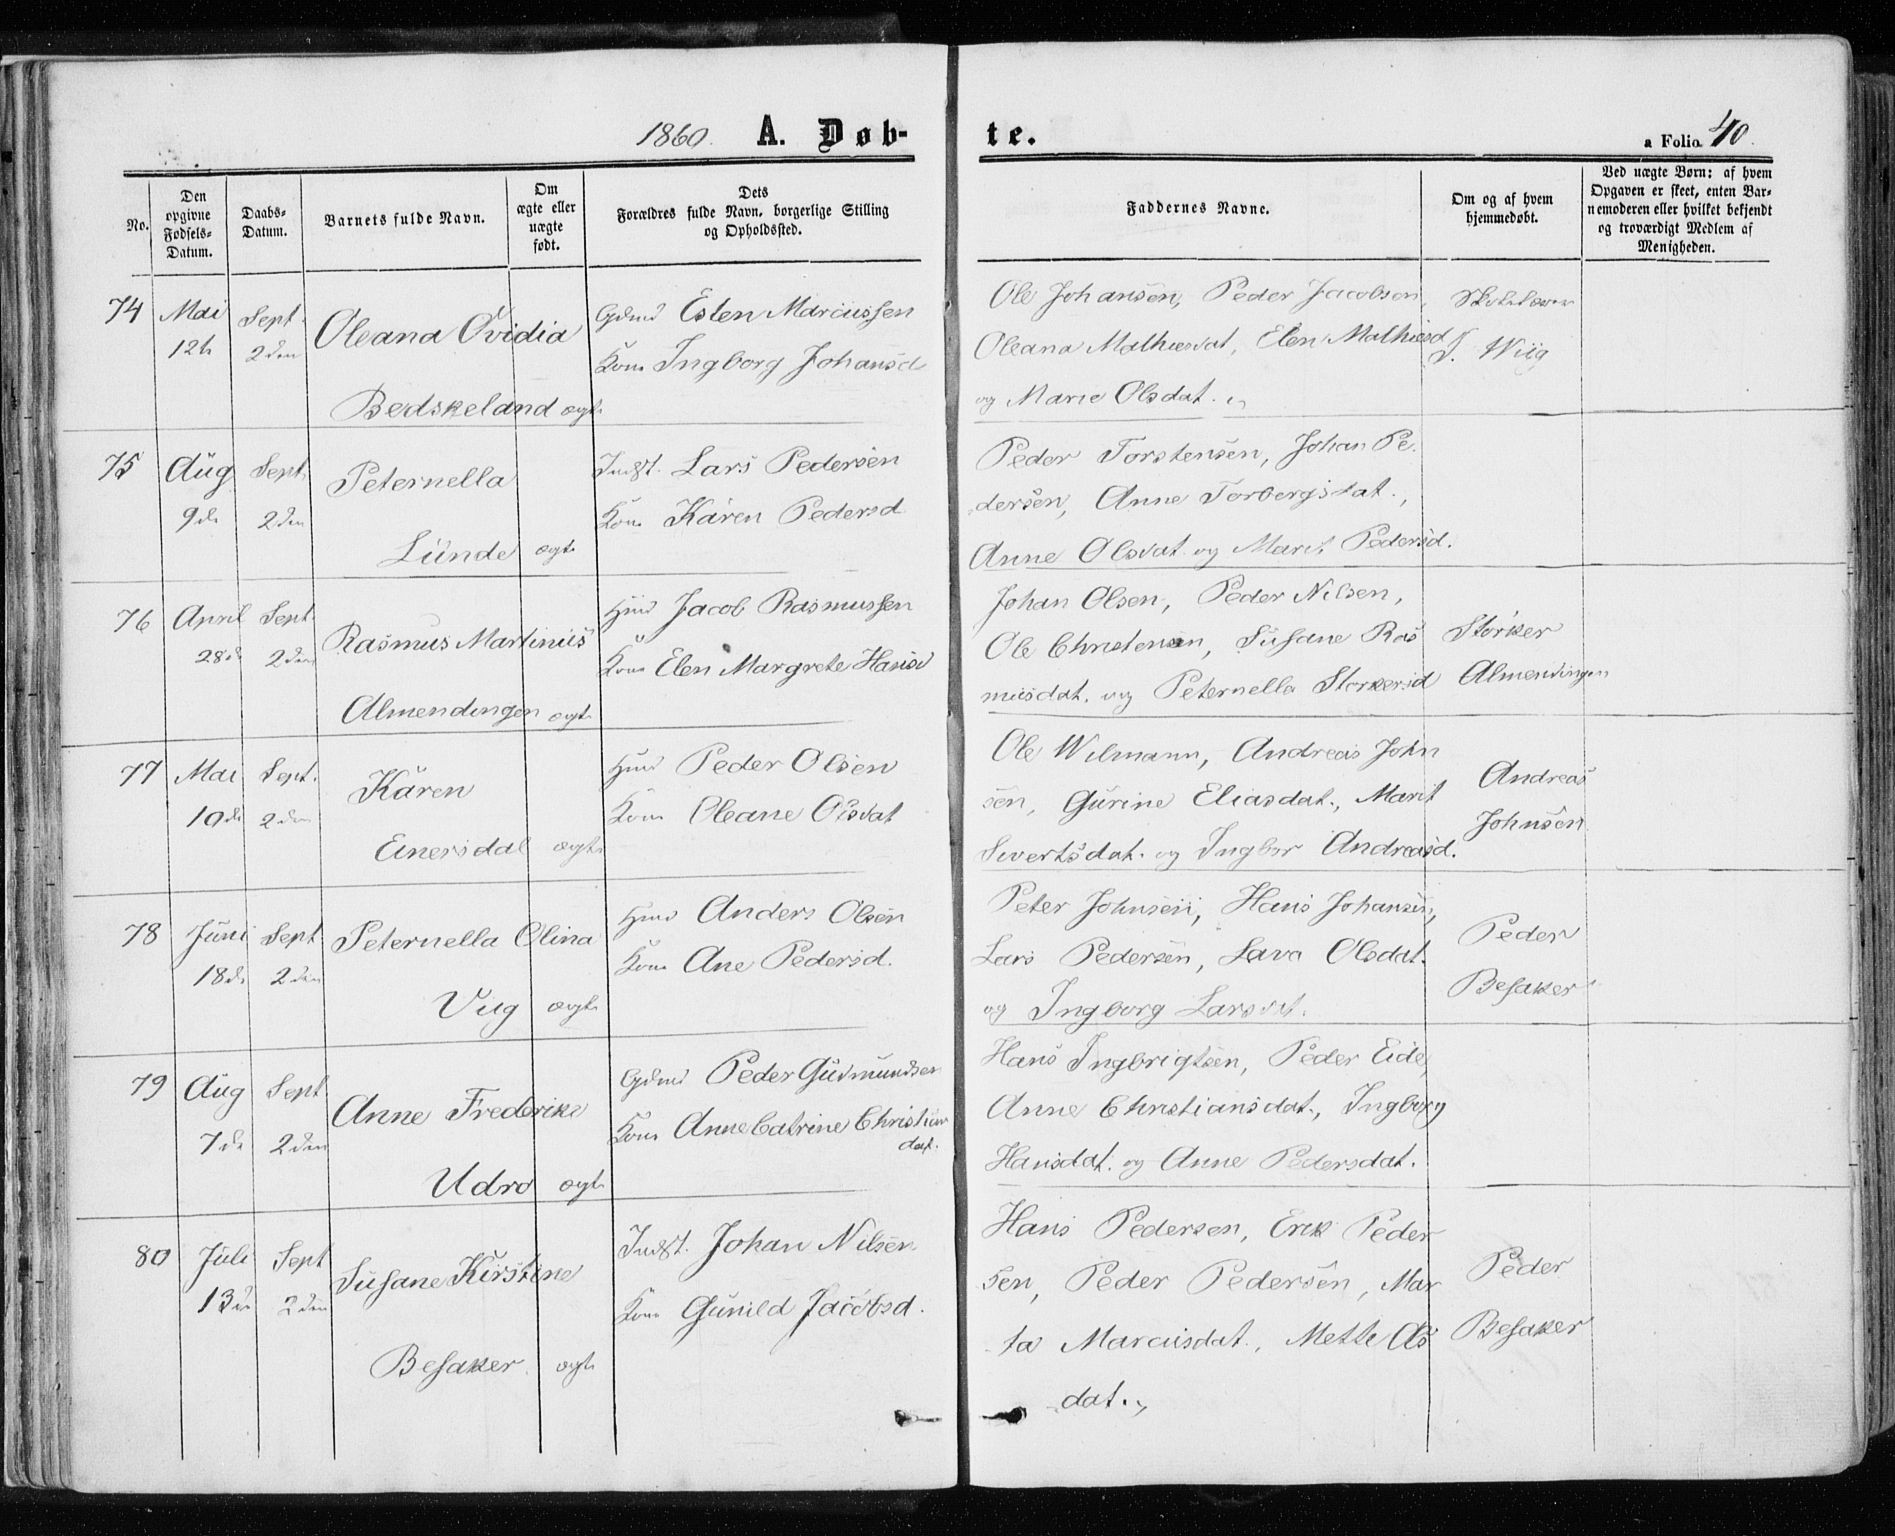 1860. A. Døb- te. a Folio 40.
No.
Den opgivne Fødsels-Datum.
Daabs-Datum.
Barnets fulde Navn.
Om ægte eller uægte født.
Dets Forældres fulde Navn, borgerlige Stilling og Opholdssted.
Faddernes Navne.
Om og af hvem hjemmedøbt.
Ved uægte Børn: af hvem Opgaven er skeet, enten Barnemoderen eller hvilket bekjendt og troværdigt Medlem af Menigheden.
74 Mai Sept. Oleana Ovidia Gdmd Esten Marcussen
12te 2den Kone Ingborg Johansd
Bedskeland ægte
Ole Johansen, Peder Jacobsen,
Oleana Mathiesdat, Elen Mathiesd
og Marie Olsdat.
Skolelærer
J. Wiig
75 Aug Sept. Peternella Indst. Lars Pedersen
9de 2den Kone Karen Pedersd
Lunde ægte
Peder Torstensen, Johan Pe
dersen, Anne Torbergsdat.,
Anne Olsdat og Marit Pedersd.
76 April Sept. Rasmus Martinus Hmd Jacob Rasmussen
28de 2den Kone Elen Margrete Hansd
Almendingen ægte
Johan Olsen, Peder Nilsen,
Ole Christensen, Susane Ras
musdat. og Peternella Storkersd
Størker
Almendingen
77 Mai Sept. Karen Hmd Peder Olsen
10de 2den Kone Oleane Olsdat
Einersdal ægte
Ole Wilmann, Andreas John
sen, Gurine Eliasdat., Marit
Sivertsdat. og Ingbor Andreasd.
Andreas
Johnsen
78 Juni Sept Peternella Olina Hmd Anders Olsen
18de 2den Kone Ane Pedersd.
Vug ægte
Peter Johnsen, Hans Johansen,
Lars Pedersen, Lava Olsdat.
og Ingborg Larsdat.
Peder
Besaker
79 Aug Sept Anne Frederike Gdmd Peder Gudmundsen
7de 2den Kone Anne Catrine Christians
dat.
Udro ægte
Hans Ingbrigtsen, Peder Eide
Anne Christiansdat., Ingborg
Hansdat. og Anne Pedersdat.
80 Juli Sept Susane Kirstine Indst. Johan Nilsen
13de 2den Kone Gunild Jacobsd.
Besaker ægte
Hans Pedersen, Erik Peder
sen, Peder Pedersen, Mar
ta Marcusdat., Mette Ols
dat.
Peder
Besaker